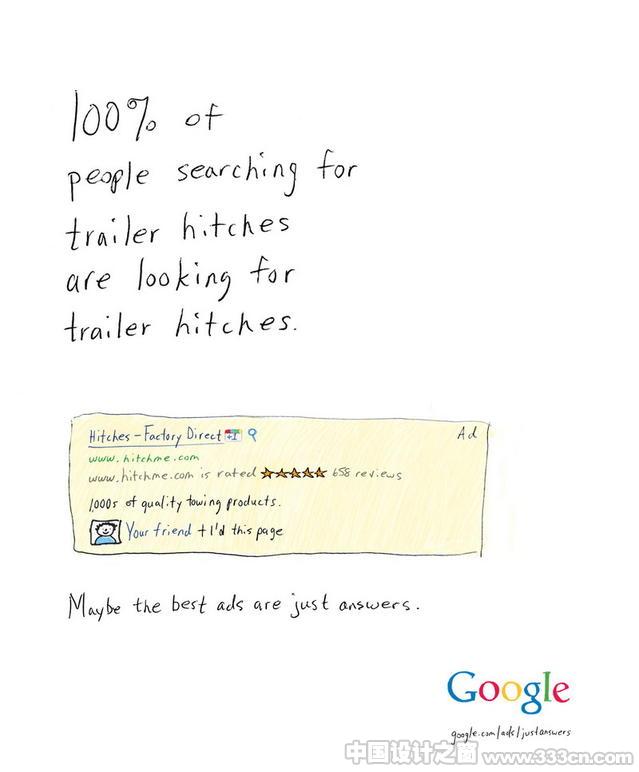 100% of
people searching for
trailer hitches
are looking for
trailer hitches.
Hitches - Factory Direct +1
Ad
www.hitchme.com
www.hitchme.com is rated ★★★★★ 658 reviews
1,000s of quality towing products.
Your friend +1'd this page
Maybe the best ads are just answers.
Google
google.com/ads/justanswers
中国设计之窗 www.333cn.com